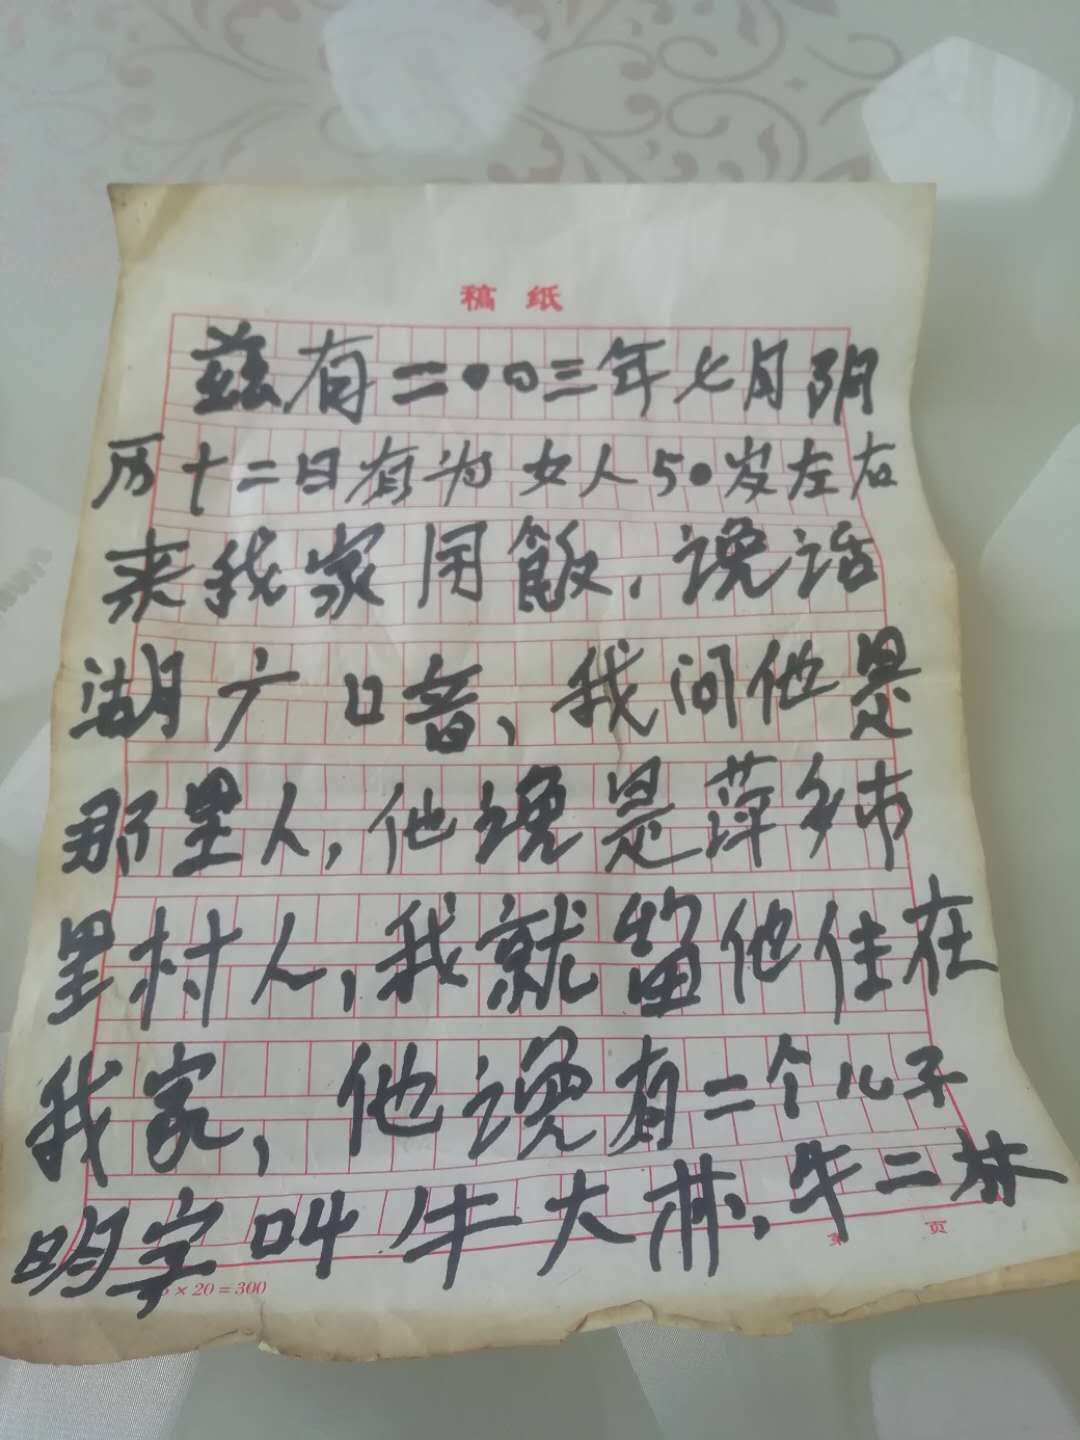 稿纸
兹有二〇〇三年七月阴
历十二日有为女人50岁左右
来我家用飯，说话
湖广口音，我问他是
那里人，他说是萍乡市
里村人，我就留他住在
我家，他说有二个儿子
明字叫牛大林，牛二林
页
× 20 = 300